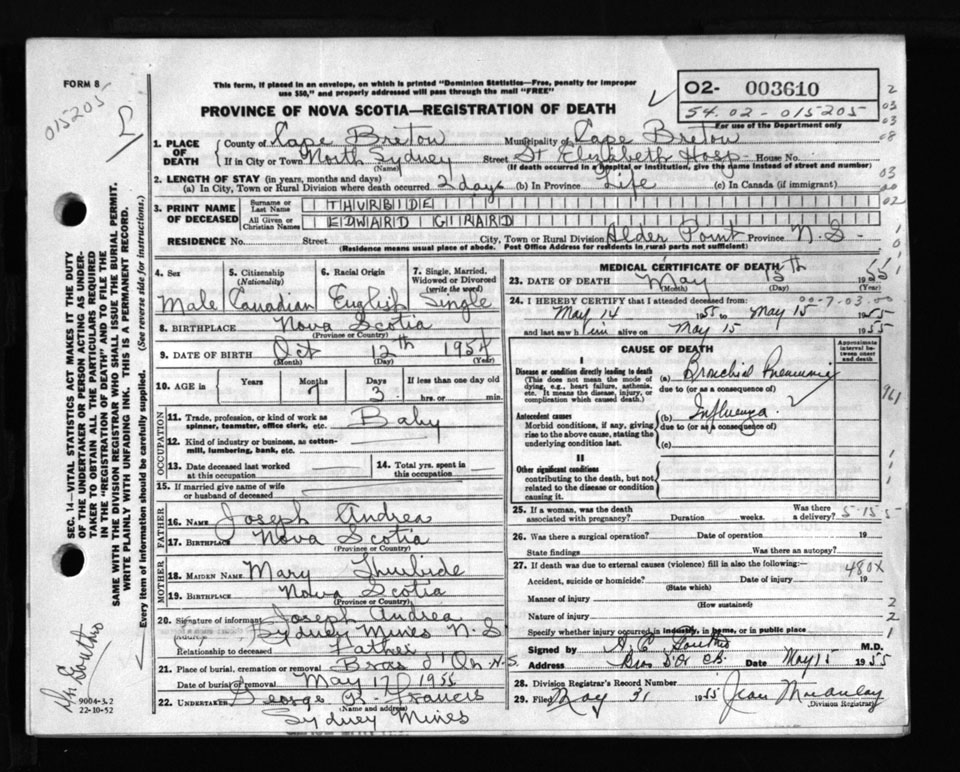 FORM 8
015205
This form, if placed in an envelope, on which is printed "Dominion Statistics—Free, penalty for improper
use $50," and properly addressed will pass through the mail "FREE"
PROVINCE OF NOVA SCOTIA—REGISTRATION OF DEATH
02- 003610
54.02-015205
For use of the Department only
2
03
03
08
03
00
02
1. PLACE OF DEATH County of Cape Breton Municipality of Cape Breton
If in City or Town North Sydney Street St Elizabeth Hosp - House No.
(Name) (If death occurred in a hospital or institution, give the name instead of street and number)
2. LENGTH OF STAY (in years, months and days)
(a) In City, Town or Rural Division where death occurred 2 days (b) In Province Life (c) In Canada (if immigrant)
3. PRINT NAME OF DECEASED
Surname or Last Name THURBIDE
All Given or Christian Names EDWARD GIRARD
RESIDENCE No. Street City, Town or Rural Division Alder Point Province N.S-
(Residence means usual place of abode. Post Office Address for residents in rural parts not sufficient)
4. Sex
Male
5. Citizenship
(Nationality)
Canadian
6. Racial Origin
English
7. Single, Married, Widowed or Divorced
(write the word)
Single
8. BIRTHPLACE Nova Scotia
(Province or Country)
9. DATE OF BIRTH Oct 12th 1954
(Month) (Day) (Year)
10. AGE in Years Months Days If less than one day old
7 3 hrs. or min.
OCCUPATION
11. Trade, profession, or kind of work as
spinner, teamster, office clerk, etc. Baby
12. Kind of industry or business, as cotton-
mill, lumbering, bank, etc.
13. Date deceased last worked
at this occupation
14. Total yrs. spent in
this occupation
15. If married give name of wife
or husband of deceased
FATHER
16. NAME Joseph Andrea
17. BIRTHPLACE Nova Scotia
(Province or Country)
MOTHER
18. MAIDEN NAME Mary Thurbide
19. BIRTHPLACE Nova Scotia
(Province or Country)
20. Signature of informant Joseph Andrea
Sydney Mines N.S
Relationship to deceased Father
21. Place of burial, cremation or removal Bras d'Or N.S.
Date of burial or removal May 17 1955
22. UNDERTAKER George Francis
(Name and address)
Sydney Mines
MEDICAL CERTIFICATE OF DEATH
23. DATE OF DEATH May 15th 1955
(Month) (Day)
24. I HEREBY CERTIFY that I attended deceased from: 00-7.03.00
May 14 1955 to May 15 1955
and last saw him alive on May 15 1955
CAUSE OF DEATH
Approximate interval between onset and death
I
Disease or condition directly leading to death
(This does not mean the mode of
dying, e.g., heart failure, asthenia,
etc. It means the disease, injury, or
complication which caused death.)
(a) Bronchial Pneumonia
due to (or as a consequence of)
Antecedent causes
Morbid conditions, if any, giving
rise to the above cause, stating the
underlying condition last.
(b) Influenza
due to (or as a consequence of)
(c)
961
II
Other significant conditions
contributing to the death, but not
related to the disease or condition
causing it.
25. If a woman, was the death
associated with pregnancy? Duration weeks. Was there
a delivery? 5-15 5
26. Was there a surgical operation? Date of operation 19
State findings Was there an autopsy?
27. If death was due to external causes (violence) fill in also the following: 480X
Accident, suicide or homicide? Date of injury 19
(State which)
Manner of injury
(How sustained)
Nature of injury
Specify whether injury occurred in industry, in home, or in public place
Signed by M.D.
Address Bras D'Or C.B. Date May 15 1955
28. Division Registrar's Record Number
29. Filed May 31 1955 Jean Macaulay
(Division Registrar)
SEC. 14—VITAL STATISTICS ACT MAKES IT THE DUTY
OF THE UNDERTAKER OR PERSON ACTING AS UNDER-
TAKER TO OBTAIN ALL THE PARTICULARS REQUIRED
IN THE "REGISTRATION OF DEATH" AND TO FILE THE
SAME WITH THE DIVISION REGISTRAR WHO SHALL ISSUE THE BURIAL PERMIT.
WRITE PLAINLY WITH UNFADING INK. THIS IS A PERMANENT RECORD.
Every item of information should be carefully supplied. (See reverse side for instructions.)
9004-3.2
22-10-52